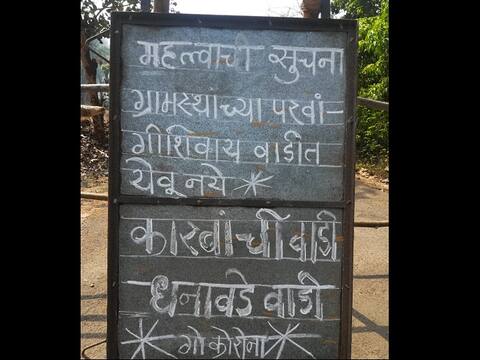 महत्त्वाची सुचना
ग्रामस्थाच्या परवां-
गीशिवाय वाडीत
येवू नये *
कारबांची वाडी
धनावडे वाडी
* गो कोरोना *